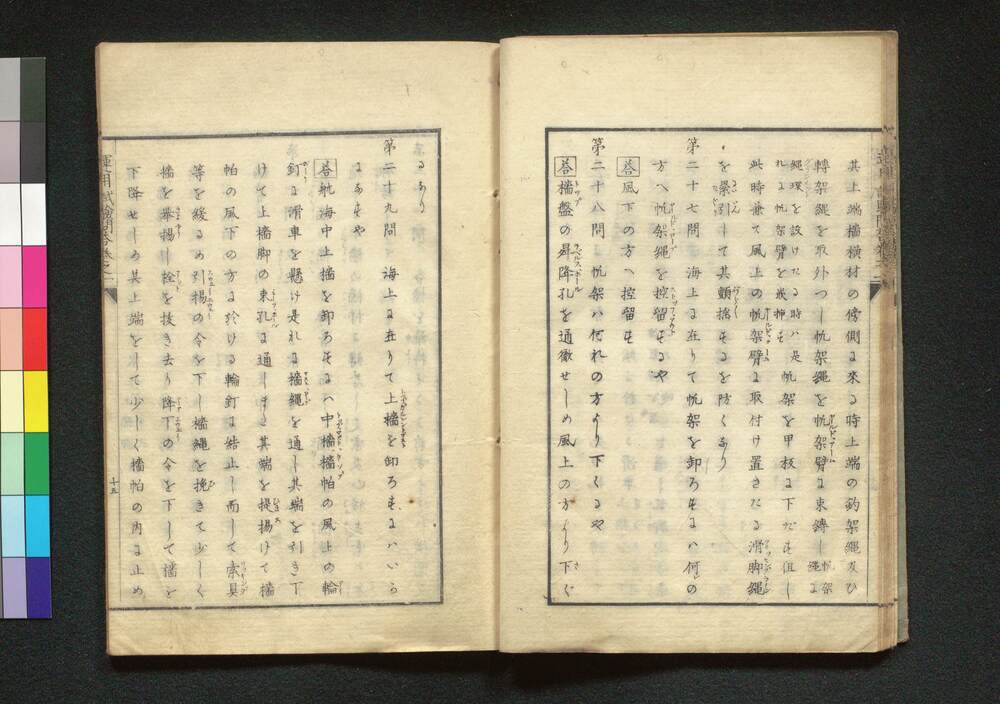 其上端檣横材の傍側に來る時上端の釣架縄及ひ
轉架縄を取外つし帆架縄を帆架臂に束縛し
帆架縄に縄環を設けたる時ハ是れに帆架臂を挿も
帆架を甲板に下だも但し
此時兼て風上の帆架臂に取付け置きたる滑脚縄
を索引して其顛搖もるを防くなり
第二十七問 海上に在りて帆架を卸ろもにハ何の
方へ帆架縄を控留もや
答 風下の方へ控留も
第二十八問 帆架ハ何れの方より下くるや
答 檣盤の昇降孔を通徹せしめ風上の方より下ぐ
るあり
第二十九問 海上に在りて上檣を卸ろもにハいら
にあもや
答 航海中上檣を卸ろもにハ中檣檣帕の風上の輪
釘に滑車を懸け是れに檣縄を通し其端を引き下
けて上檣脚の束孔に通しまし其端を提揚けて檣
帕の風下の方に於ける輪釘に結止し而して索具
等を緩るめ引揚の令を下し檣縄を挽きて少しく
檣を舉揚し栓を抜き去り降下の令を下して檣を
下降せしめ其上端をして少しく檣帕の内に止め
十五